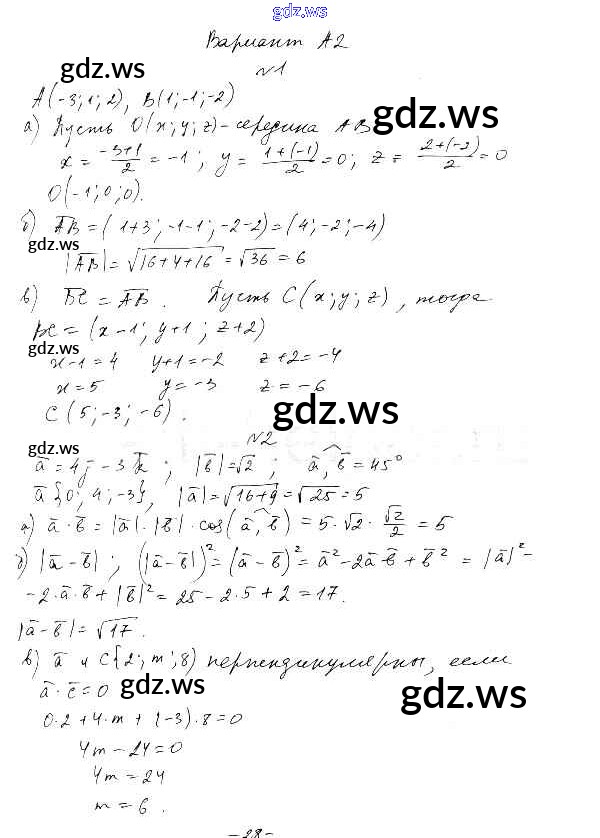 gdz.ws
Вариант А2
gdz.ws
№1
A(-3; 1; 2), B(1; -1; -2)
gdz.ws
а) Пусть O(x; y; z) - середина AB
x = \frac{-3+1}{2} = -1; y = \frac{1+(-1)}{2} = 0; z = \frac{2+(-2)}{2} = 0
O(-1; 0; 0).
б) \overline{AB} = (1+3; -1-1; -2-2) = (4; -2; -4)
gdz.ws
|\overline{AB}| = \sqrt{16+4+16} = \sqrt{36} = 6
в) \overline{BC} = \overline{AB}. Пусть C(x; y; z), тогда
BC = (x-1; y+1; z+2)
gdz.ws
x-1=4 y+1=-2 z+2=-4
x=5 y=-3 z=-6
C(5; -3; -6).
gdz.ws
№2
gdz.ws
\overline{a} = 4\overline{j} - 3\overline{k}; |\overline{b}| = \sqrt{2}; \widehat{\overline{a}, \overline{b}} = 45°
\overline{a}{0; 4; -3}, |\overline{a}| = \sqrt{16+9} = \sqrt{25} = 5
а) \overline{a} · \overline{b} = |\overline{a}| · |\overline{b}| · cos(\widehat{\overline{a}, \overline{b}}) = 5 · \sqrt{2} · \frac{\sqrt{2}}{2} = 5
б) |\overline{a} - \overline{b}|; (|\overline{a} - \overline{b}|)^2 = (\overline{a} - \overline{b})^2 = \overline{a}^2 - 2\overline{a}·\overline{b} + \overline{b}^2 = |\overline{a}|^2 -
- 2·\overline{a}·\overline{b} + |\overline{b}|^2 = 25 - 2·5 + 2 = 17.
|\overline{a} - \overline{b}| = \sqrt{17}.
в) \overline{a} и C{2; m; 8) перпендикулярны, если
gdz.ws
gdz.ws
\overline{a} · \overline{c} = 0
0·2 + 4·m + (-3)·8 = 0
4m - 24 = 0
4m = 24
m = 6.
- 28 -